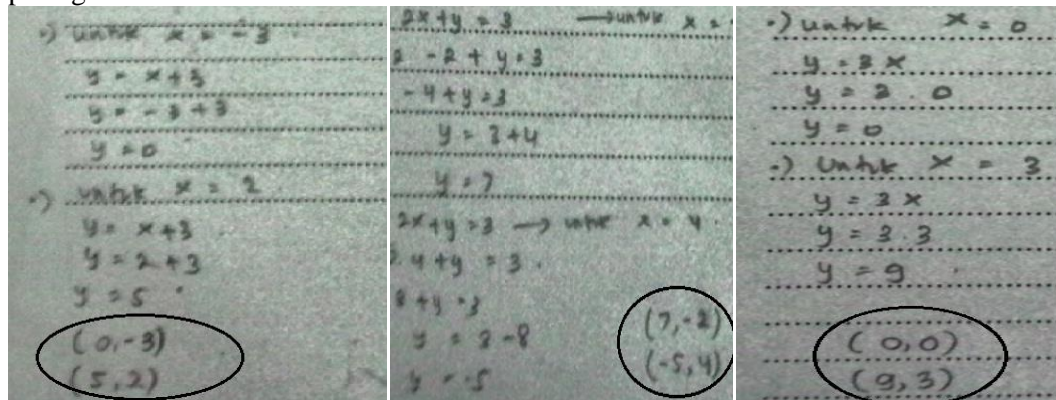 ·) untuk x = -3
y = x+3
y = -3+3
y = 0
·) untuk x = 2
y = x+3
y = 2+3
y = 5
(0,-3)
(5,2)
2x+y = 3 → untuk x =
2 -2 + y = 3
-4+y = 3
y = 3+4
y = 7
2x+y = 3 → untuk x = 4
2.4+y = 3
8+y = 3
y = 3-8
y = -5
(7,-2)
(-5,4)
·) untuk x = 0
y = 3x
y = 3.0
y = 0
·) untuk x = 3
y = 3x
y = 3.3
y = 9
(0,0)
(9,3)